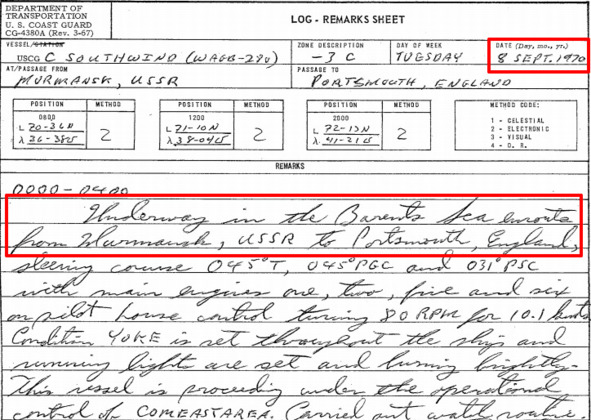 DEPARTMENT OF
TRANSPORTATION
U. S. COAST GUARD
CG-4380A (Rev. 3-67)
LOG - REMARKS SHEET
VESSEL/STATION
ZONE DESCRIPTION
DAY OF WEEK
DATE (Day, mo., yr.)
USCG C SOUTHWIND (WAGB-280)
-3 C
TUESDAY
8 SEPT. 1970
AT/PASSAGE FROM
PASSAGE TO
MURMANSK, USSR
PORTSMOUTH, ENGLAND
POSITION METHOD
POSITION METHOD
POSITION METHOD
METHOD CODE:
0800
1200
2000
1 - CELESTIAL
L 70-36N
L 71-10N
L 72-13N
2 - ELECTRONIC
λ 36-38E
2
λ 38-04E
2
λ 41-21E
2
3 - VISUAL
4 - D. R.
REMARKS
0000-0400
Underway in the Barents Sea enroute
from Murmansk, USSR to Portsmouth, England,
steering course 045°T, 045°PGC and 031°PSC
with main engines one, two, five and six
on pilot house control turning 80 RPM for 10.1 knots
Condition YOKE is set throughout the ship and
running lights are set and burning brightly.
This vessel is proceeding under the operational
control of COMEASTAREA. Carried out watch routine.